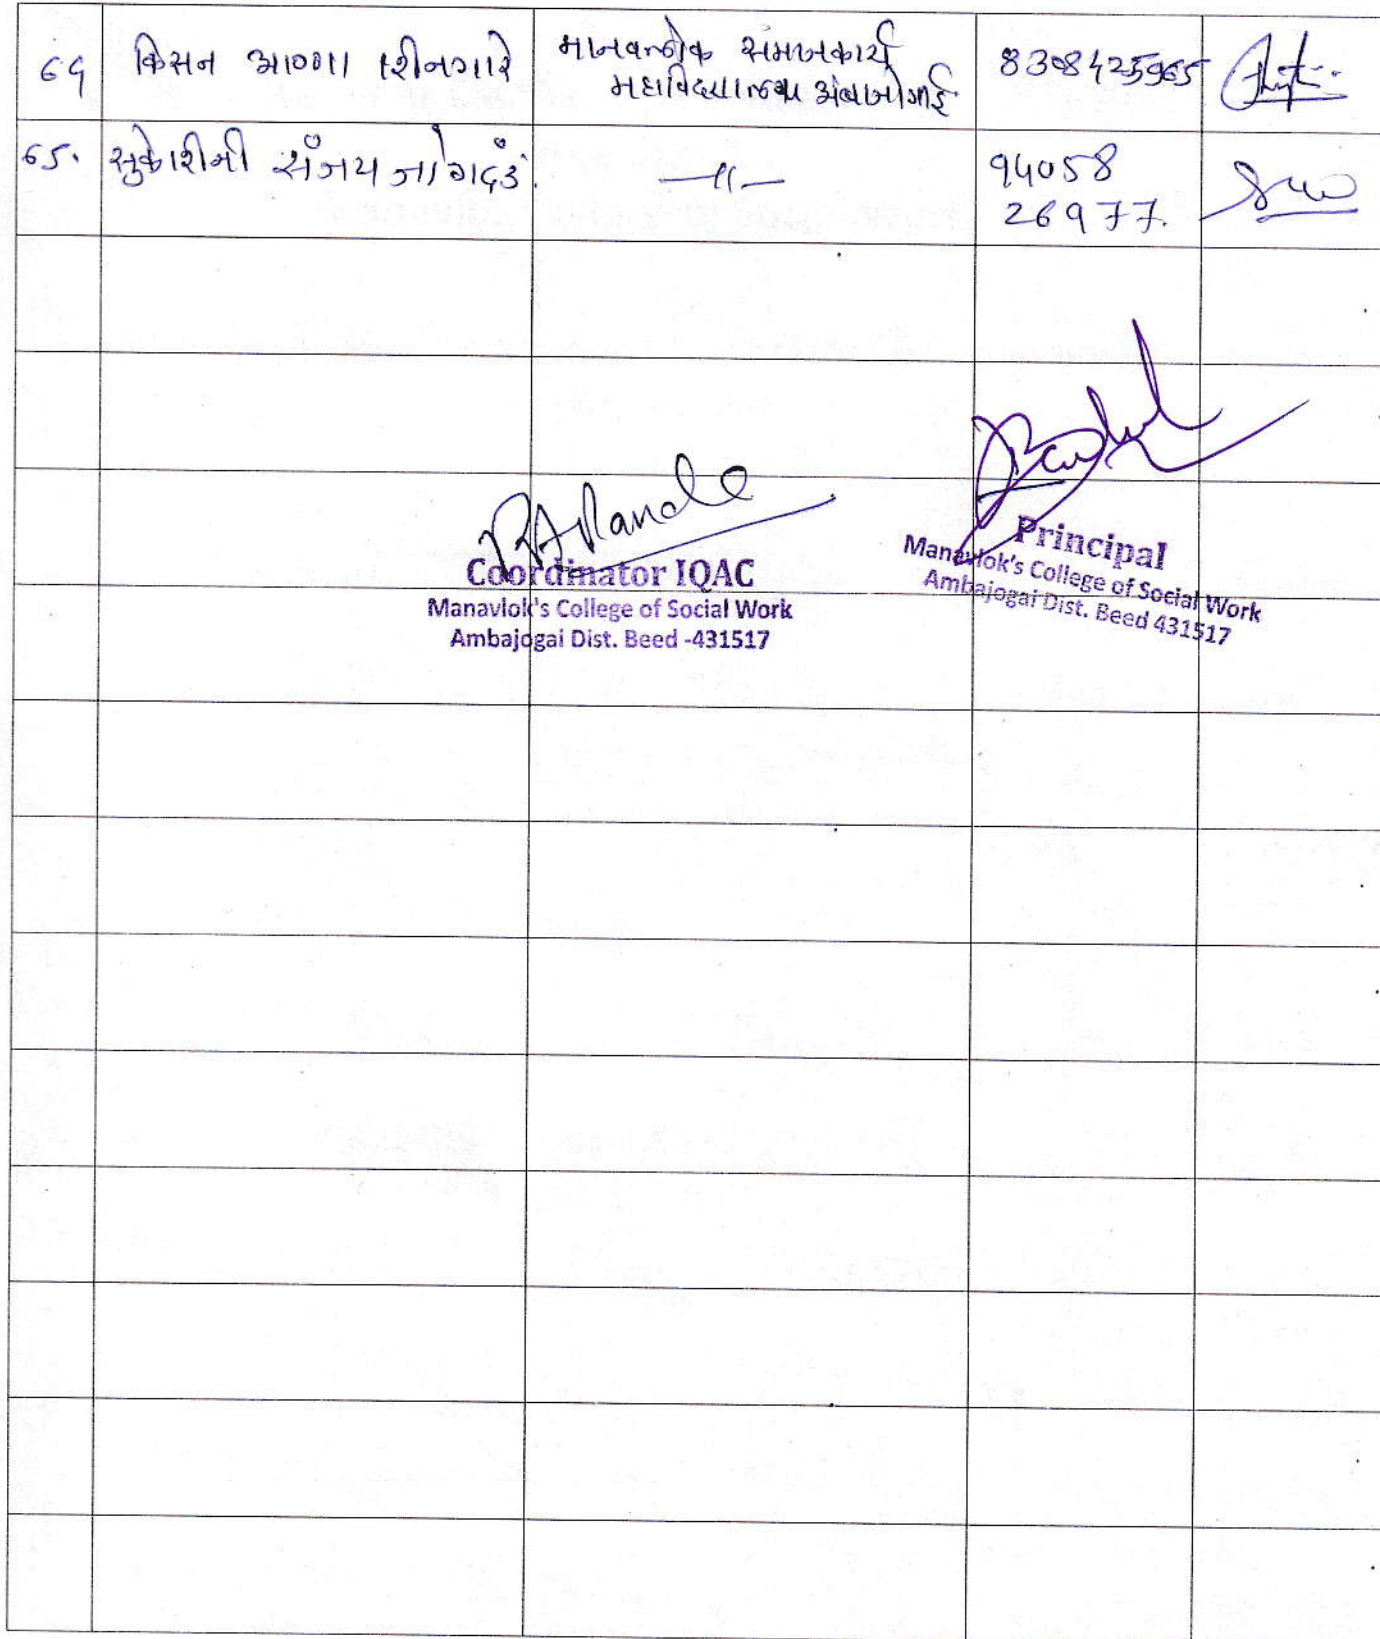 64 किसन आण्णा शिनगारे मानवलोक समाजकार्य 8308425965
महाविद्यालय अंबाजोगाई
65. सुकेशीनी संजय जोगदंड. —॥— 94058
26977.
Coordinator IQAC
Manavlok's College of Social Work
Ambajogai Dist. Beed -431517
Principal
Manavlok's College of Social Work
Ambajogai Dist. Beed 431517